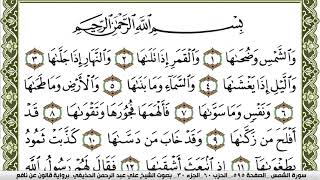 بِسْمِ اللَّهِ الرَّحْمَٰنِ الرَّحِيمِ
وَالشَّمْسِ وَضُحَىٰهَا ١ وَالْقَمَرِ إِذَا تَلَىٰهَا ٢ وَالنَّهَارِ إِذَا جَلَّىٰهَا ٣
وَاللَّيْلِ إِذَا يَغْشَىٰهَا ٤ وَالسَّمَآءِ وَمَا بَنَىٰهَا ٥ وَالْأَرْضِ وَمَا طَحَىٰهَا
٦ وَنَفْسٍ وَمَا سَوَّىٰهَا ٧ فَأَلْهَمَهَا فُجُورَهَا وَتَقْوَىٰهَا ٨ قَدْ
أَفْلَحَ مَن زَكَّىٰهَا ٩ وَقَدْ خَابَ مَن دَسَّىٰهَا ١٠ كَذَّبَتْ ثَمُودُ
بِطَغْوَىٰهَا ١١ إِذِ انبَعَثَ أَشْقَىٰهَا ١٢ فَقَالَ لَهُمْ رَسُولُ اللَّهِ
سورة الشمس . صفحة ٥٩٥ . الحزب ٦٠ . الجزء ٣٠ . بصوت الشيخ علي عبد الرحمن الحذيفي . برواية قالون عن نافع